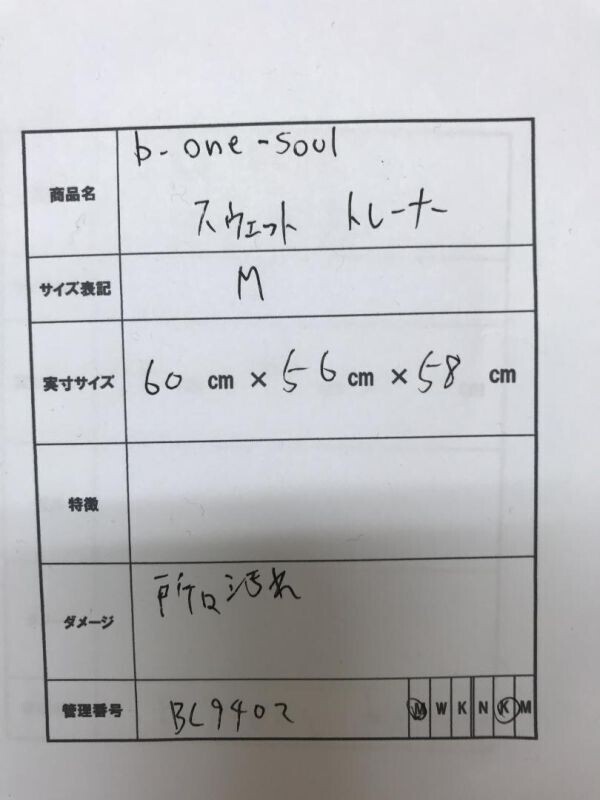 商品名
b-one-soul
スウェット トレーナー
サイズ表記
M
実寸サイズ
60 cm × 56 cm × 58 cm
特徴
ダメージ
汚れ
管理番号
BL9402
M W K N K M